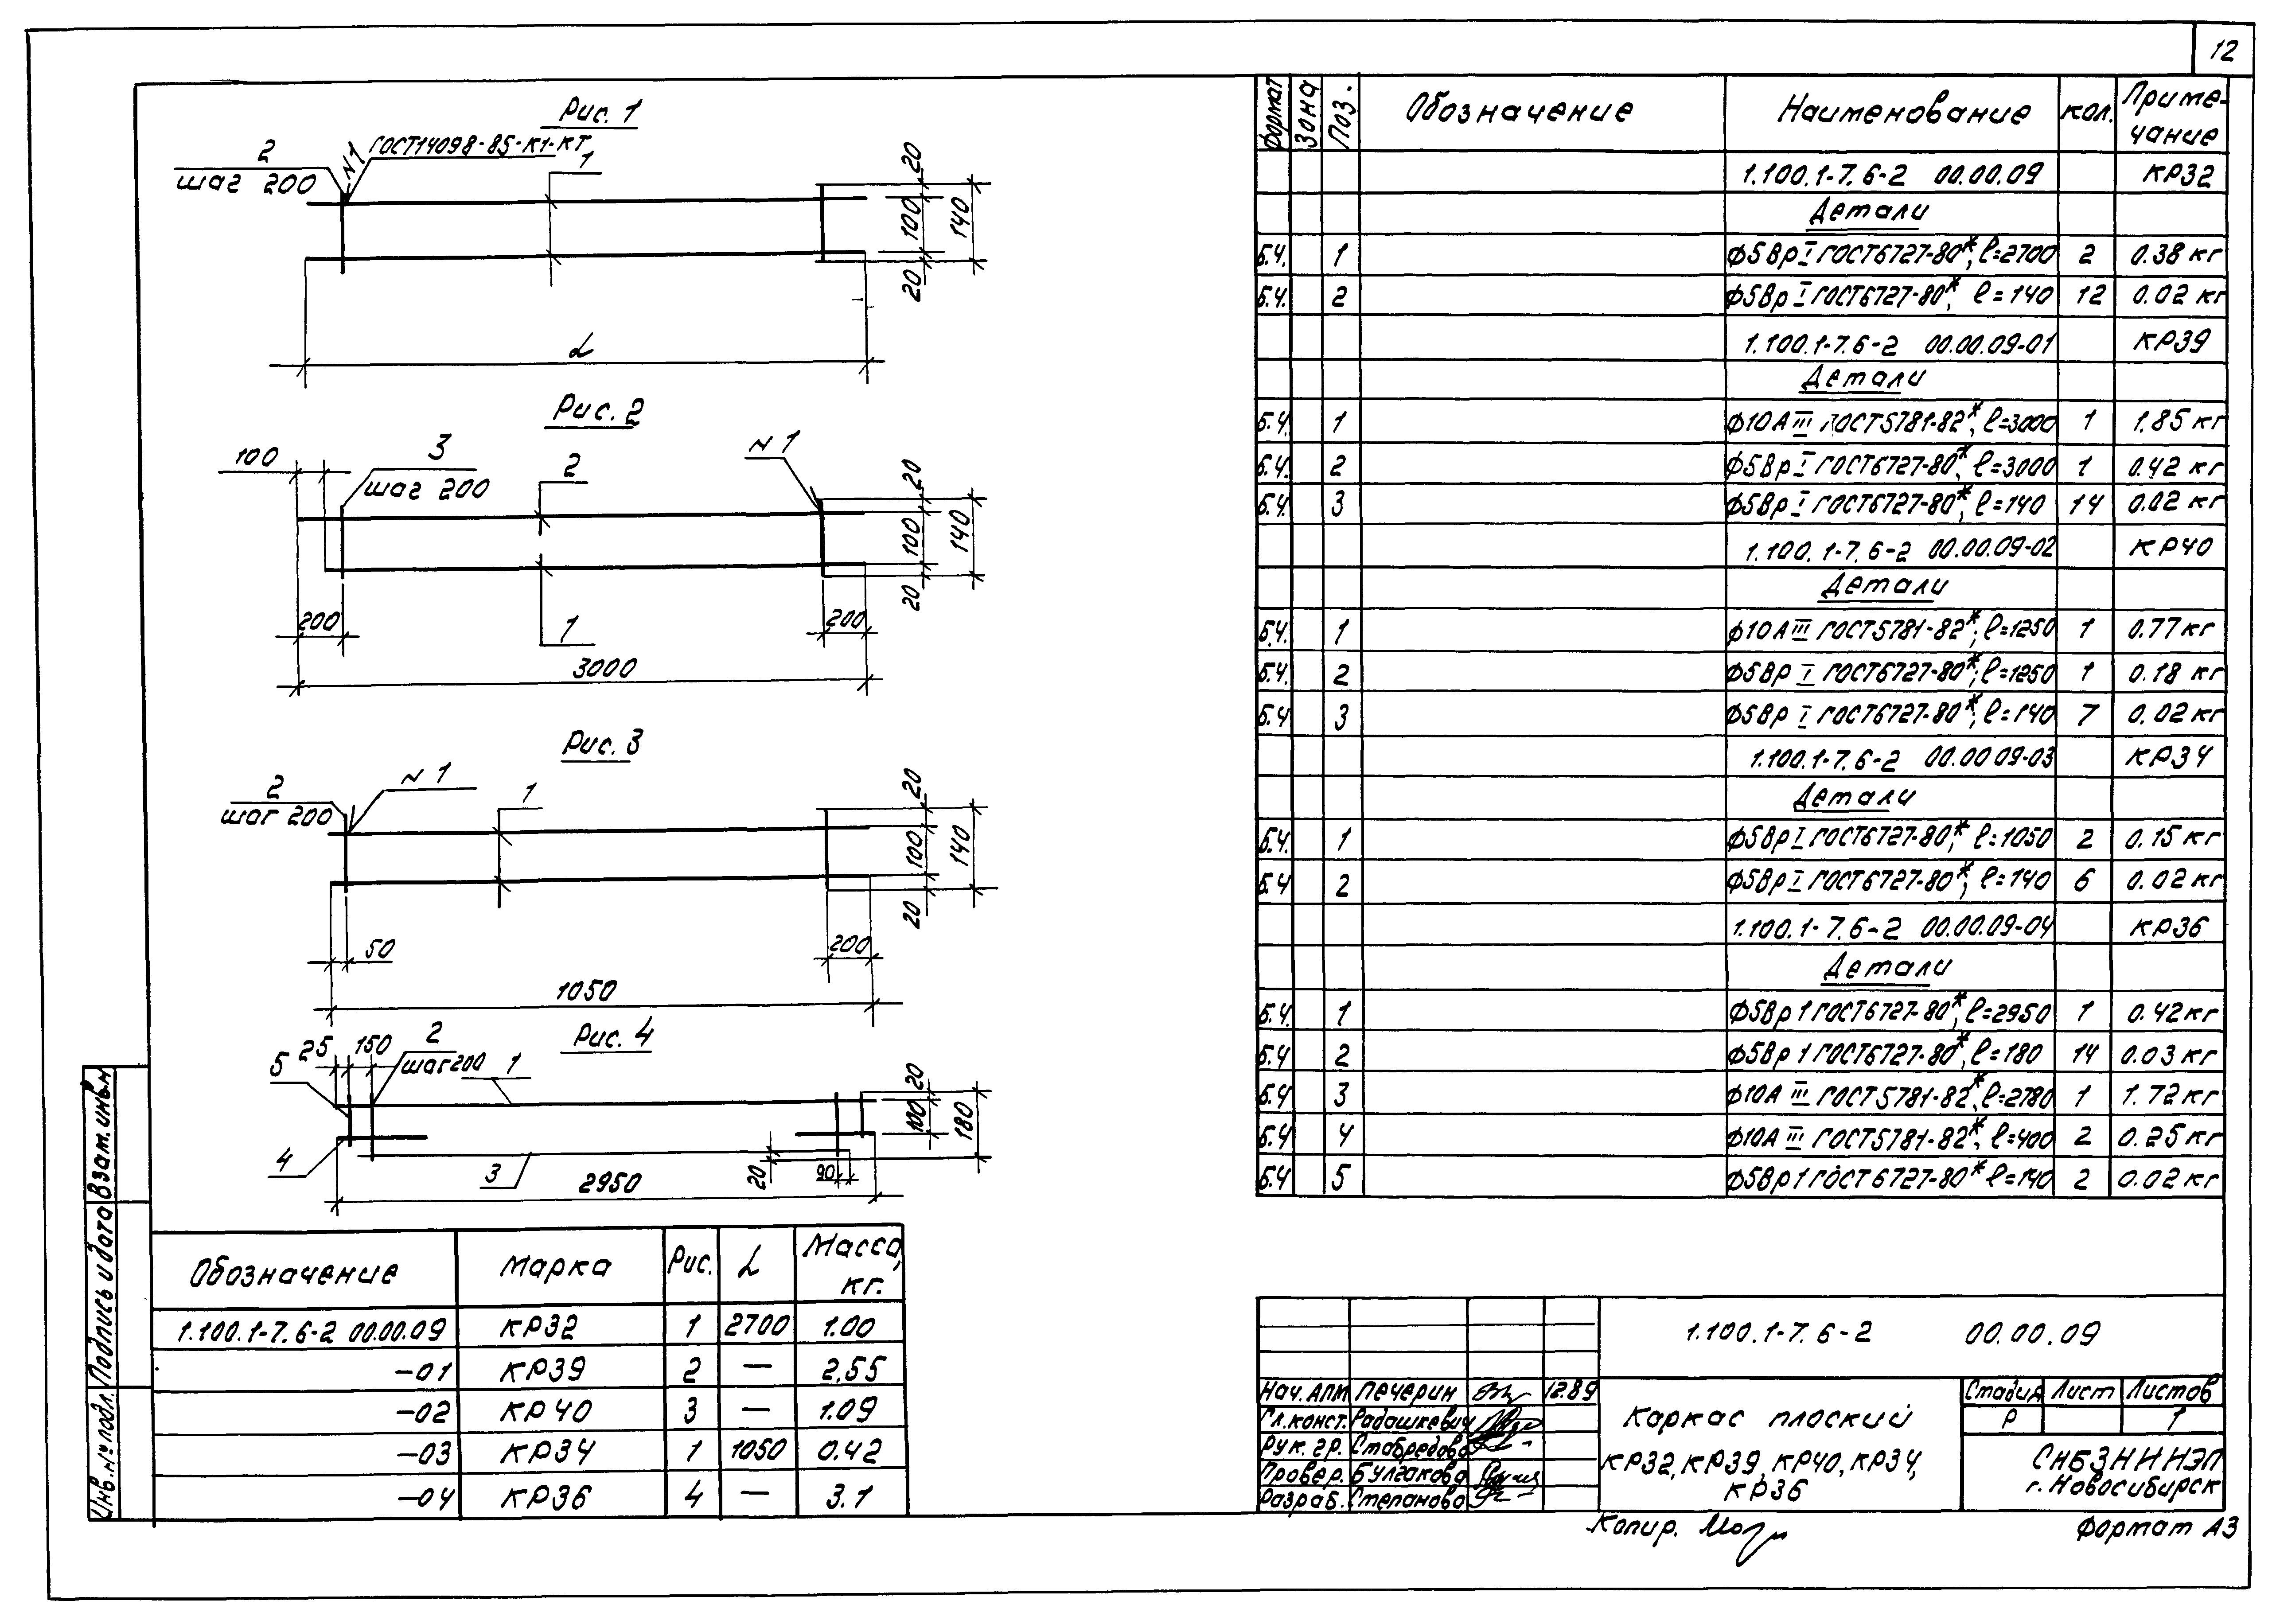 12
Рис. 1
2
шаг 200
N1
ГОСТ14098-85-К1-КТ
1
20
100
140
20
L
Рис. 2
100
3
шаг 200
2
N 1
20
100
140
20
200
1
200
3000
Рис. 3
2
шаг 200
N 1
1
20
100
140
20
50
200
1050
Рис. 4
5
25
150
2
шаг200
1
20
100
180
4
3
20
90
2950
Обозначение Марка Рис. L Масса, кг.
1.100.1-7.6-2 00.00.09 КР32 1 2700 1.00
-01 КР39 2 — 2,55
-02 КР40 3 — 1.09
-03 КР34 1 1050 0.42
-04 КР36 4 — 3.1
Формат Зона Поз. Обозначение Наименование Кол. Приме-
чание
1.100.1-7.6-2 00.00.09 КР32
Детали
Б.Ч. 1 Ф5ВрI ГОСТ6727-80*, ℓ=2700 2 0.38 кг
Б.Ч. 2 Ф5ВрI ГОСТ6727-80*, ℓ=140 12 0.02 кг
1.100.1-7.6-2 00.00.09-01 КР39
Детали
Б.Ч. 1 Ф10АIII ГОСТ5781-82*, ℓ=3000 1 1.85 кг
Б.Ч. 2 Ф5ВрI ГОСТ6727-80*, ℓ=3000 1 0.42 кг
Б.Ч. 3 Ф5ВрI ГОСТ6727-80*, ℓ=140 14 0.02 кг
1.100.1-7.6-2 00.00.09-02 КР40
Детали
Б.Ч. 1 Ф10АIII ГОСТ5781-82*, ℓ=1250 1 0.77 кг
Б.Ч. 2 Ф5Вр I ГОСТ6727-80*, ℓ=1250 1 0.18 кг
Б.Ч 3 Ф5Вр I ГОСТ6727-80*, ℓ=140 7 0.02 кг
1.100.1-7.6-2 00.00 09-03 КР34
Детали
Б.Ч. 1 Ф5ВрI ГОСТ6727-80*, ℓ=1050 2 0.15 кг
Б.Ч 2 Ф5ВрI ГОСТ6727-80*, ℓ=140 6 0.02 кг
1.100.1-7.6-2 00.00.09-04 КР36
Детали
Б.Ч. 1 Ф5Вр1 ГОСТ6727-80*, ℓ=2950 1 0.42кг
Б.Ч 2 Ф5Вр1 ГОСТ6727-80*, ℓ=180 14 0.03 кг
Б.Ч 3 Ф10А III ГОСТ5781-82*, ℓ=2780 1 1.72 кг
Б.Ч 4 Ф10А III ГОСТ5781-82*, ℓ=400 2 0.25 кг
Б.Ч 5 Ф5Вр1 ГОСТ6727-80* ℓ=140 2 0.02 кг
1.100.1-7.6-2 00.00.09
Нач. АПМ Печерин 12.89
Гл.конст. Радашкевич
Рук. гр. Стабредова
Провер. Булгакова
Разраб. Степанова
Каркас плоский
КР32, КР39, КР40, КР34,
КР36
Стадия Лист Листов
Р 1
СибЗНИИЭП
г. Новосибирск
Копир.
Формат А3
Взам. инв.N
Подпись и дата
Инв. N° подл.